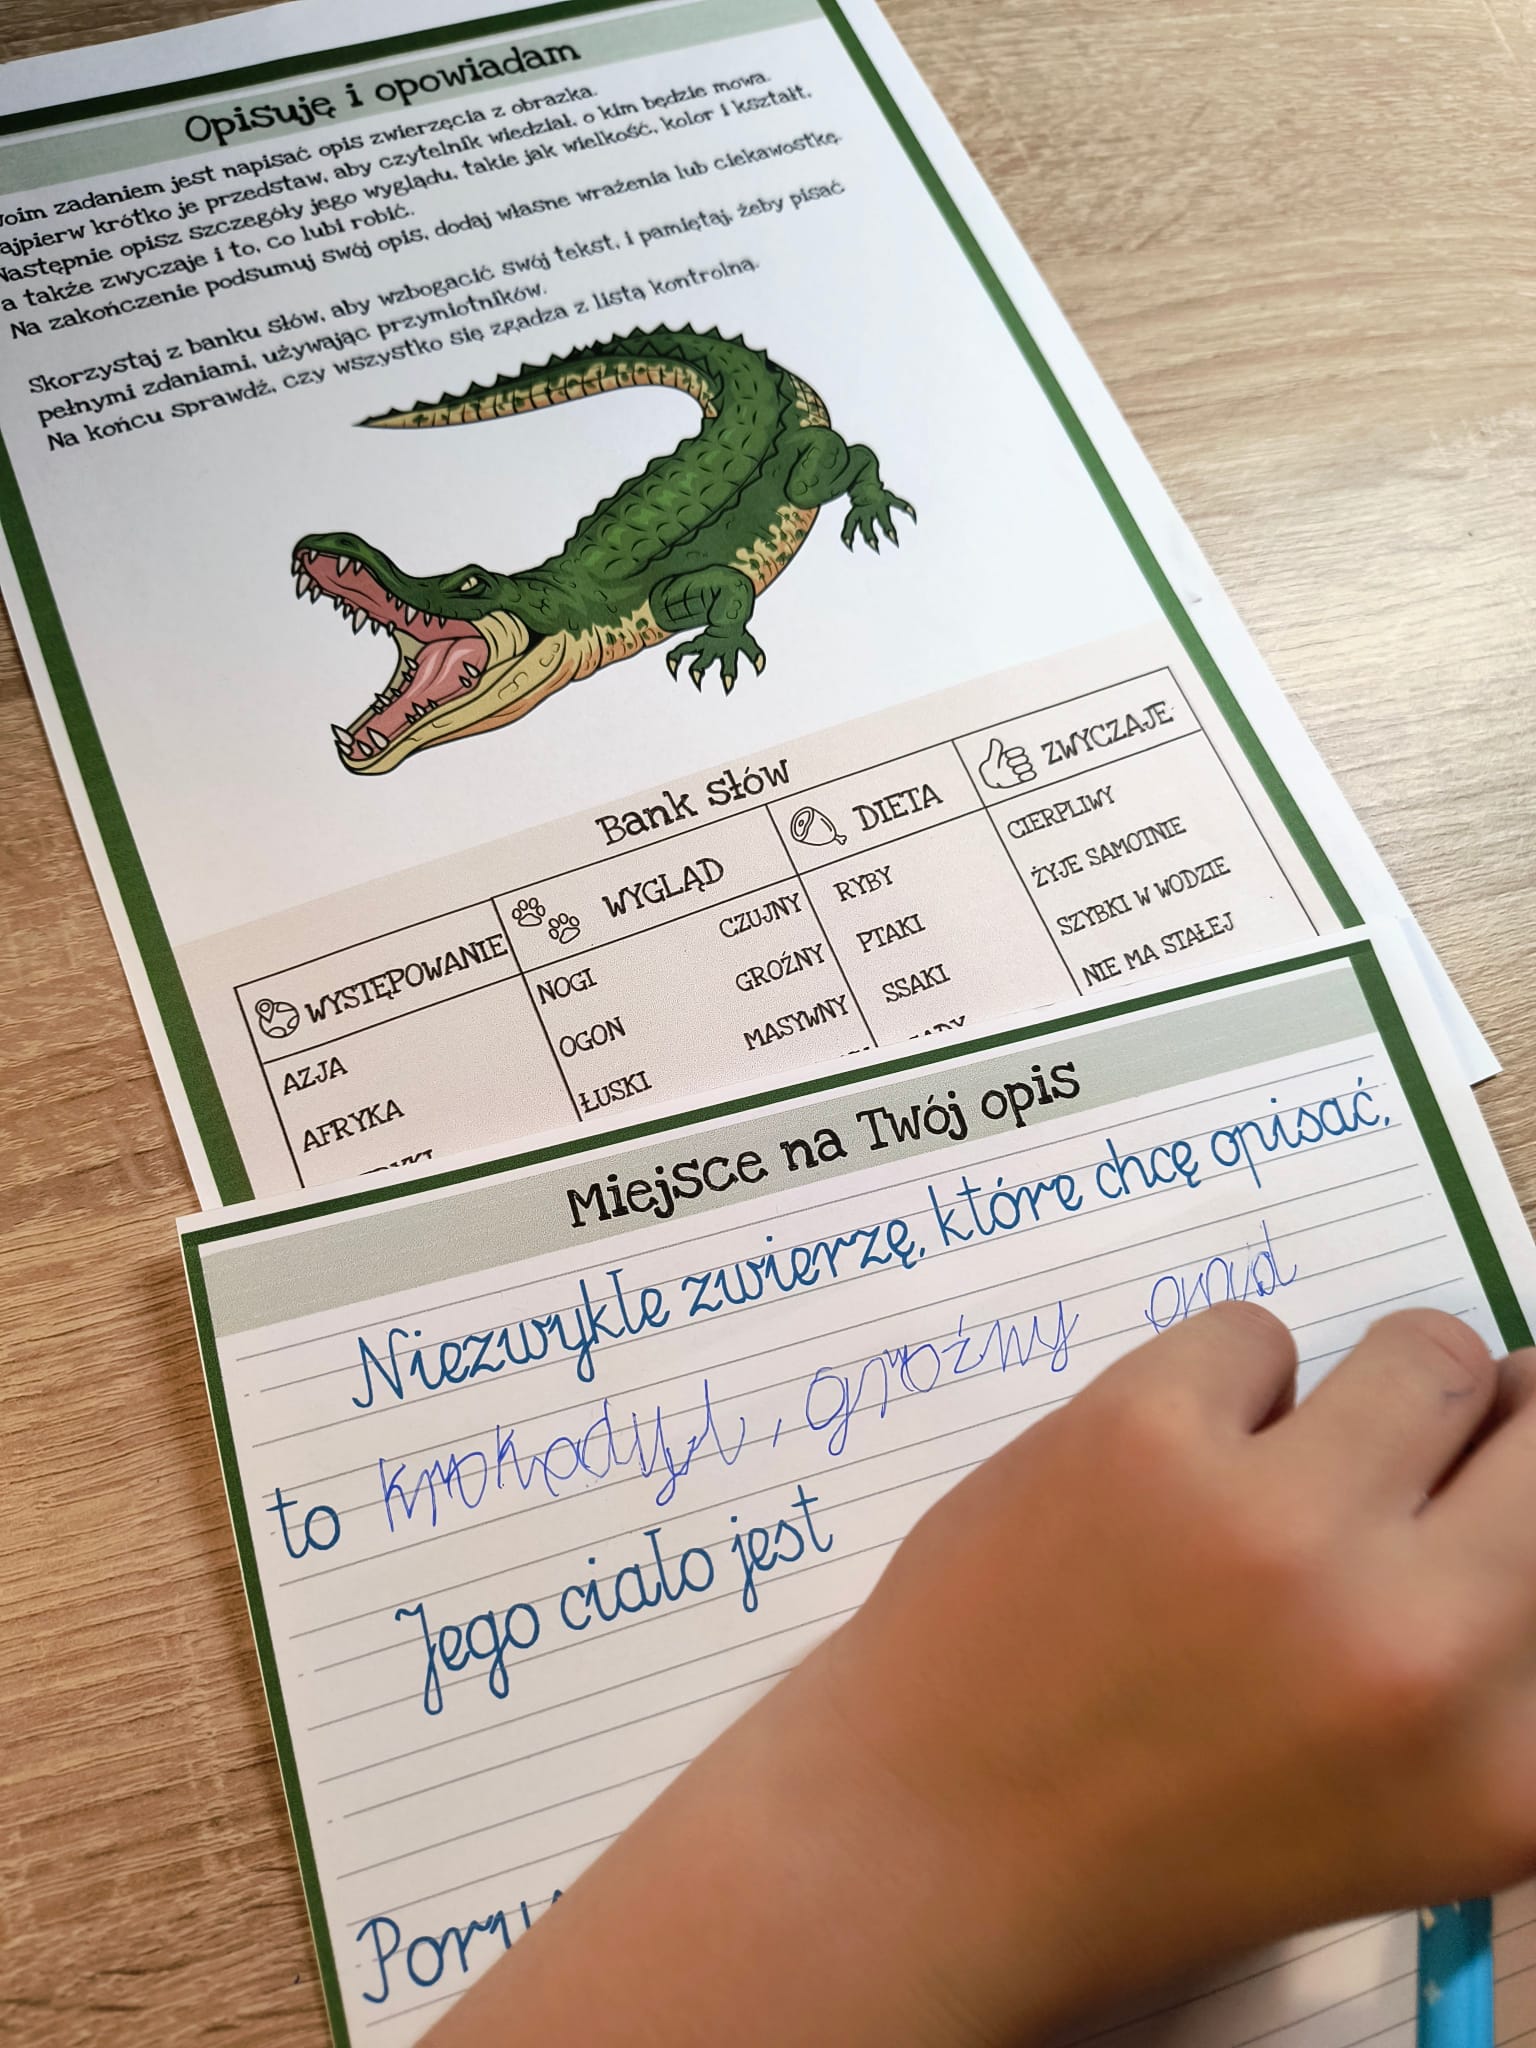 Opisuję i opowiadam
oim zadaniem jest napisać opis zwierzęcia z obrazka.
ajpierw krótko je przedstaw, aby czytelnik wiedział, o kim będzie mowa.
Następnie opisz szczegóły jego wyglądu, takie jak wielkość, kolor i kształt,
a także zwyczaje i to, co lubi robić.
Na zakończenie podsumuj swój opis, dodaj własne wrażenia lub ciekawostkę.
Skorzystaj z banku słów, aby wzbogacić swój tekst, i pamiętaj, żeby pisać
pełnymi zdaniami, używając przymiotników.
Na końcu sprawdź, czy wszystko się zgadza z listą kontrolną.
Bank słów
WYSTĘPOWANIE
AZJA
AFRYKA
WYGLĄD
NOGI
OGON
ŁUSKI
CZUJNY
GROŹNY
MASYWNY
DIETA
RYBY
PTAKI
SSAKI
ZWYCZAJE
CIERPLIWY
ŻYJE SAMOTNIE
SZYBKI W WODZIE
NIE MA STAŁEJ
Miejsce na Twój opis
Niezwykłe zwierzę, które chcę opisać,
to krokodyl, groźny
Jego ciało jest